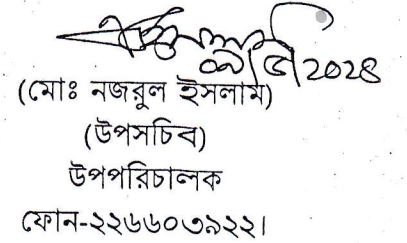 ২০২৪
(মোঃ নজরুল ইসলাম)
(উপসচিব)
উপপরিচালক
ফোন-২২৬৬০৩৯২২।